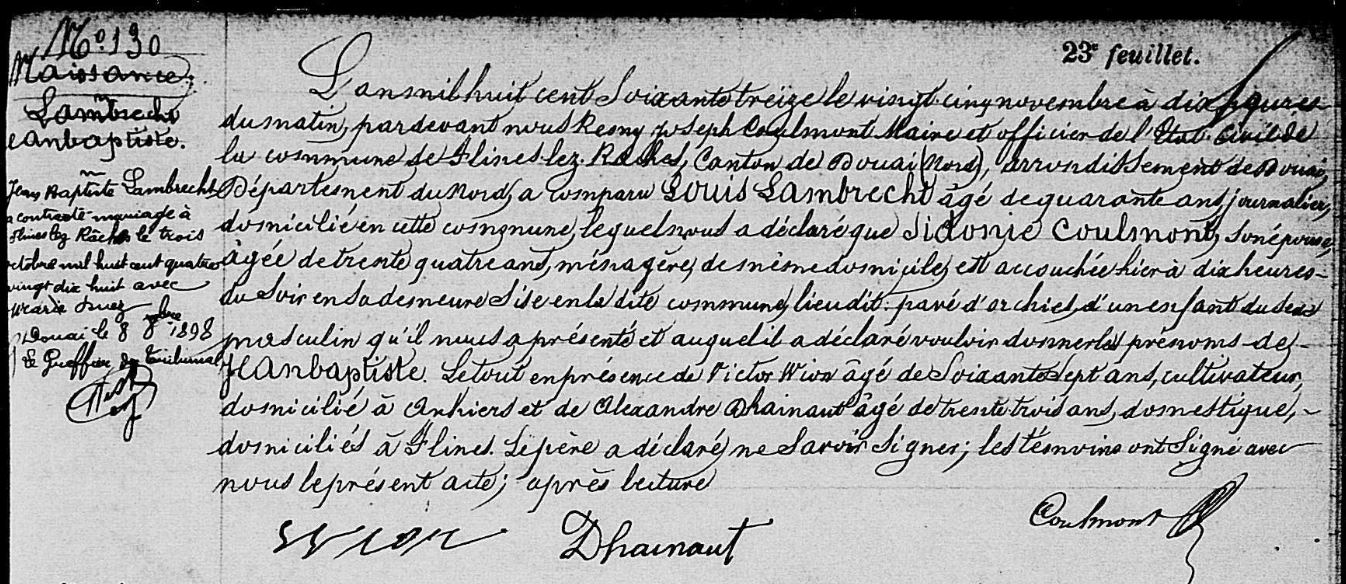 N° 130
Naissance.
Lambrecht
Jeanbaptiste.
Jean Baptiste Lambrecht
a contracté mariage à
flines lez Raches le trois
octobre mil huit cent quatre
vingt dix huit avec
Maria
Douai le 8 8bre 1898
Le Greffier du Tribunal
23e feuillet.
L'an mil huit cent Soixante treize le vingt cinq novembre à dix heures
du matin, par devant nous Remy joseph Coulmont Maire et officier de l'Etat Civil de
la commune de Flines lez Raches, Canton de Douai (Nord), arrondissement de Douai,
Département du Nord, a comparu Louis Lambrecht âgé de quarante ans, journalier,
domicilié en cette commune, lequel nous a déclaré que Sidonie Coulmont, son épouse,
âgée de trente quatre ans, ménagère, de même domicile, est accouchée hier à dix heures
du Soir en sa demeure Sise en la dite commune, lieu dit: pavé d'orchies, d'un enfant du Sexe
masculin qu'il nous a présenté et auquel il a déclaré vouloir donner les prénoms de
Jeanbaptiste. Le tout en présence de Victor Wion âgé de Soixante Sept ans, cultivateur,
domicilié à Anhiers et de Alexandre Dhainaut âgé de trente trois ans, domestique,
domiciliés à Flines. Le père a déclaré ne Savoir Signer; les témoins ont Signé avec
nous le présent acte; après lecture
Wion Dhainaut Coulmont